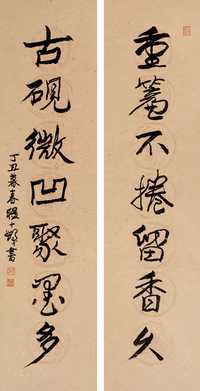 重簾不捲留香久
古硯微凹聚墨多
丁丑暮春程十髮書